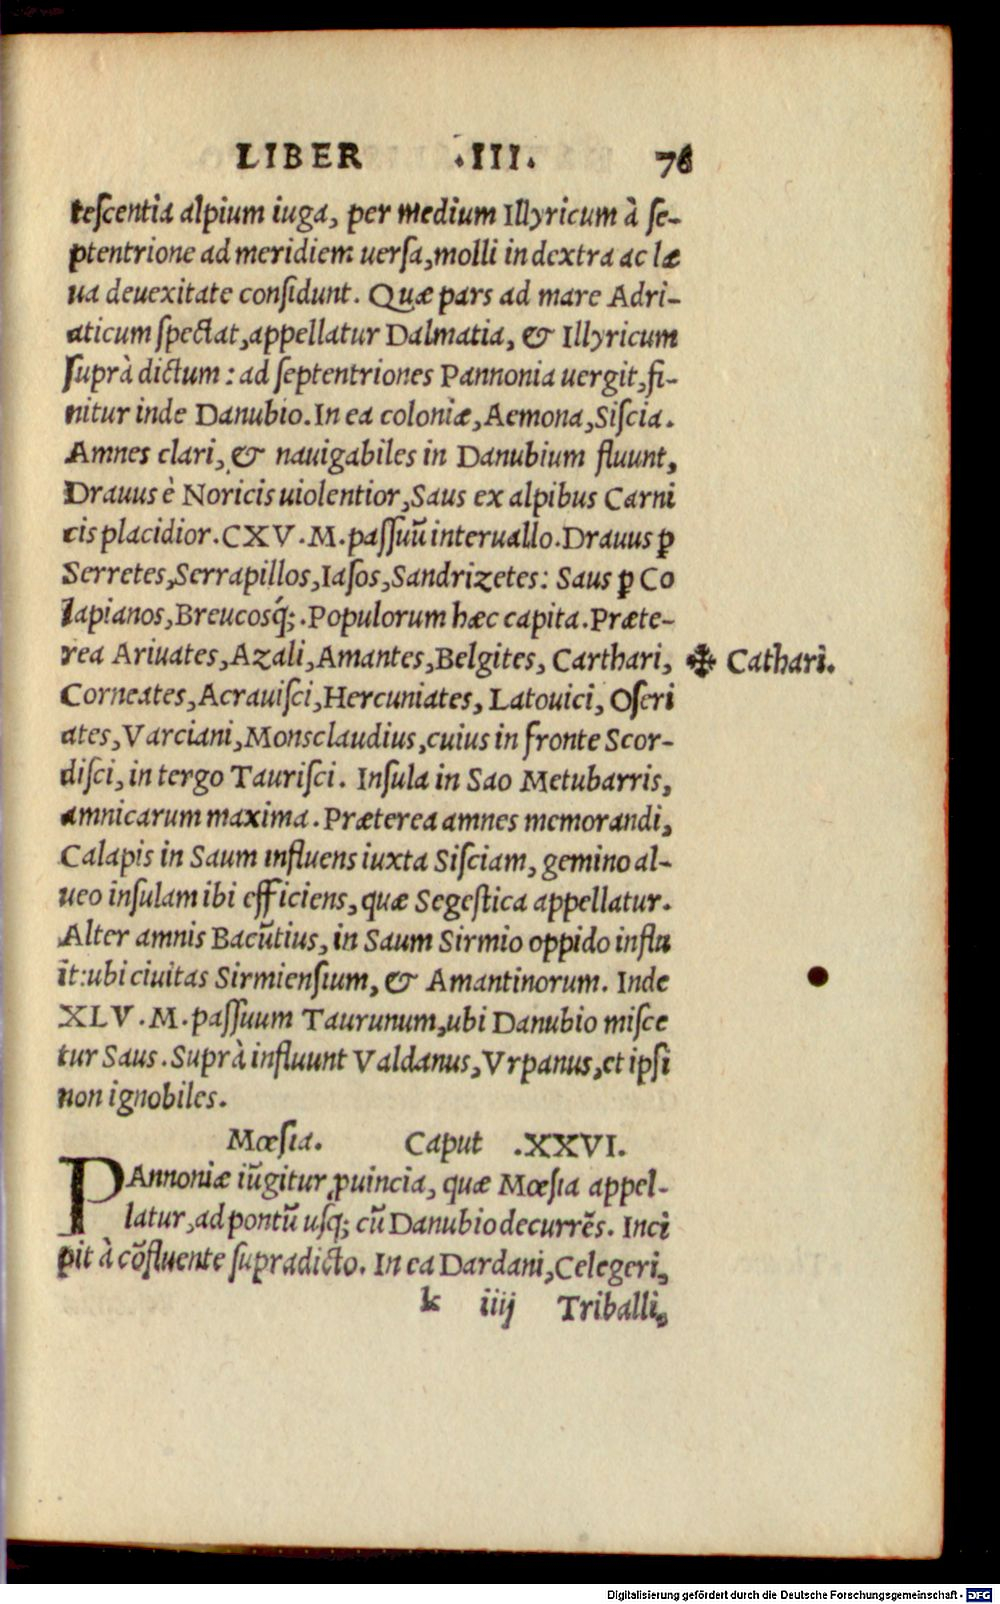 LIBER .III. 76
tescentia alpium iuga, per medium Illyricum à se-
ptentrione ad meridiem uersa, molli in dextra ac læ
ua deuexitate considunt. Quæ pars ad mare Adri-
aticum spectat, appellatur Dalmatia, & Illyricum
suprà dictum: ad septentriones Pannonia uergit, fi-
nitur inde Danubio. In ea coloniæ, Aemona, Siscia.
Amnes clari, & nauigabiles in Danubium fluunt,
Drauus è Noricis uiolentior, Saus ex alpibus Carni
cis placidior. CXV. M. passuū interuallo. Drauus ꝑ
Serretes, Serrapillos, Iasos, Sandrizetes: Saus ꝑ Co
lapianos, Breucosq́;. Populorum hæc capita. Præte-
rea Ariuates, Azali, Amantes, Belgites, Carthari, ✠ Cathari.
Corneates, Acrauisci, Hercuniates, Latouici, Oseri
ates, Varciani, Monsclaudius, cuius in fronte Scor-
disci, in tergo Taurisci. Insula in Sao Metubarris,
amnicarum maxima. Præterea amnes memorandi,
Calapis in Saum influens iuxta Sisciam, gemino al-
ueo insulam ibi efficiens, quæ Segestica appellatur.
Alter amnis Bacūtius, in Saum Sirmio oppido influ
it: ubi ciuitas Sirmiensium, & Amantinorum. Inde
XLV. M. passuum Taurunum, ubi Danubio misce
tur Saus. Suprà influunt Valdanus, Vrpanus, et ipsi
non ignobiles.
Mœsia. Caput .XXVI.
PAnnoniæ iūgitur ꝓuincia, quæ Mœsia appel-
latur, ad pontū usq; cū Danubio decurrēs. Inci
pit à cōfluente supradicto. In ea Dardani, Celegeri,
k iiij Triballi,
Digitalisierung gefördert durch die Deutsche Forschungsgemeinschaft - DFG